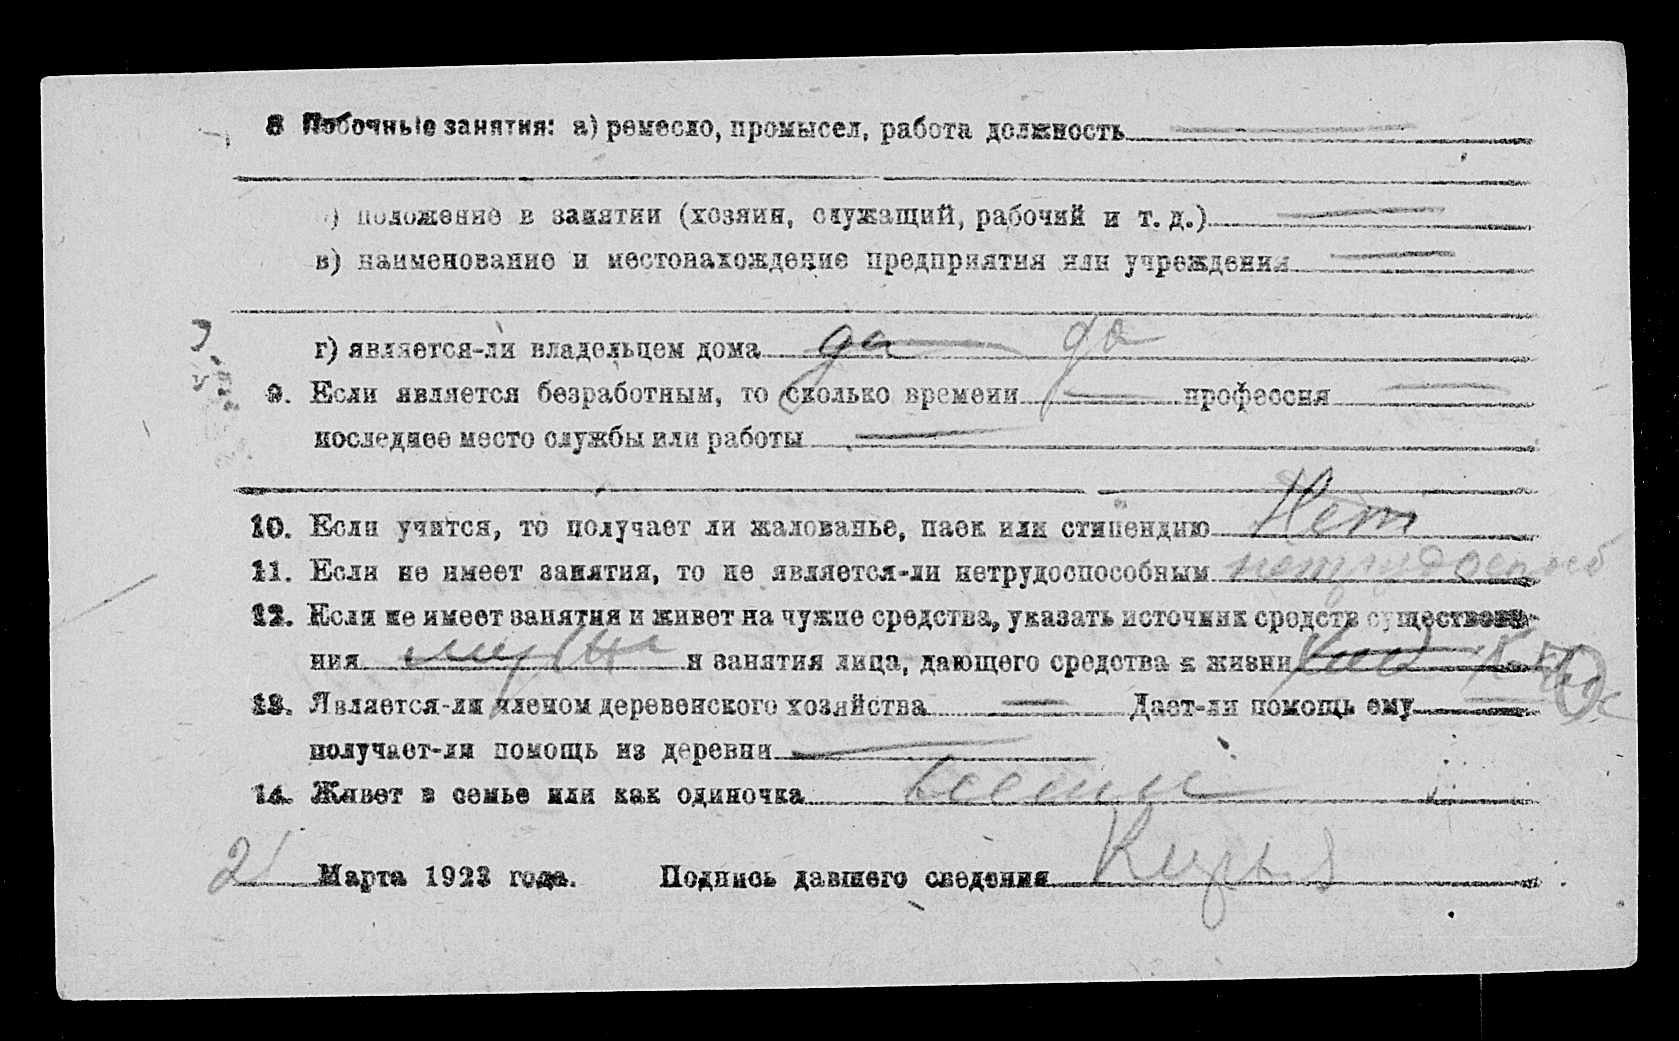 8 Побочные занятия: а) ремесло, промысел, работа должность —
) положение в занятии (хозяин, служащий, рабочий и т. д.) —
в) наименование и местонахождение предприятия или учреждения —
г) является-ли владельцем дома да — да
9. Если является безработным, то сколько времени — профессия —
последнее место службы или работы —
10. Если учится, то получает ли жалованье, паек или стипендию Нет
11. Если не имеет занятия, то не является-ли нетрудоспособным нетрудоспособ
12. Если не имеет занятия и живет на чужие средства, указать источник средств существова-
ния муж и занятия лица, дающего средства к жизни
13. Является-ли членом деревенского хозяйства — Дает-ли помощь ему —
получает-ли помощь из деревни —
14. Живет в семье или как одиночка
2 Марта 1923 года. Подпись давшего сведения